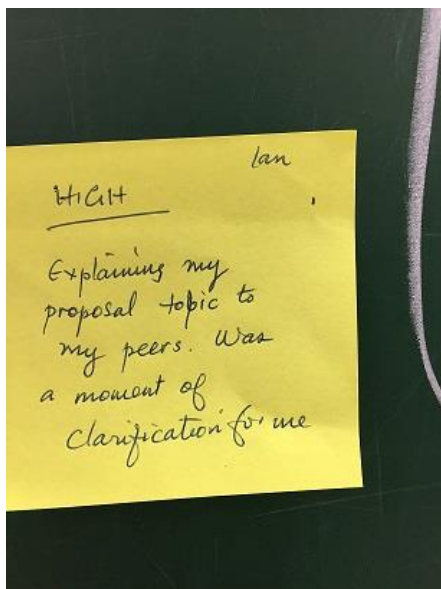 Ian
HIGH
Explaining my
proposal topic to
my peers. Was
a moment of
Clarification for me